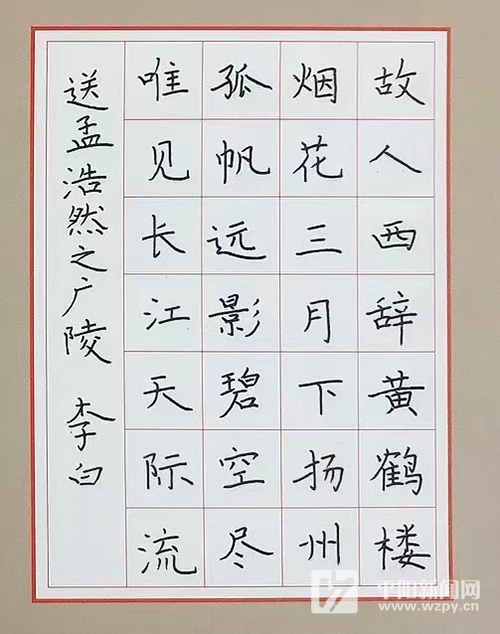 故人西辞黄鹤楼
烟花三月下扬州
孤帆远影碧空尽
唯见长江天际流
送孟浩然之广陵 李白
平阳新闻网
www.wzpy.cn